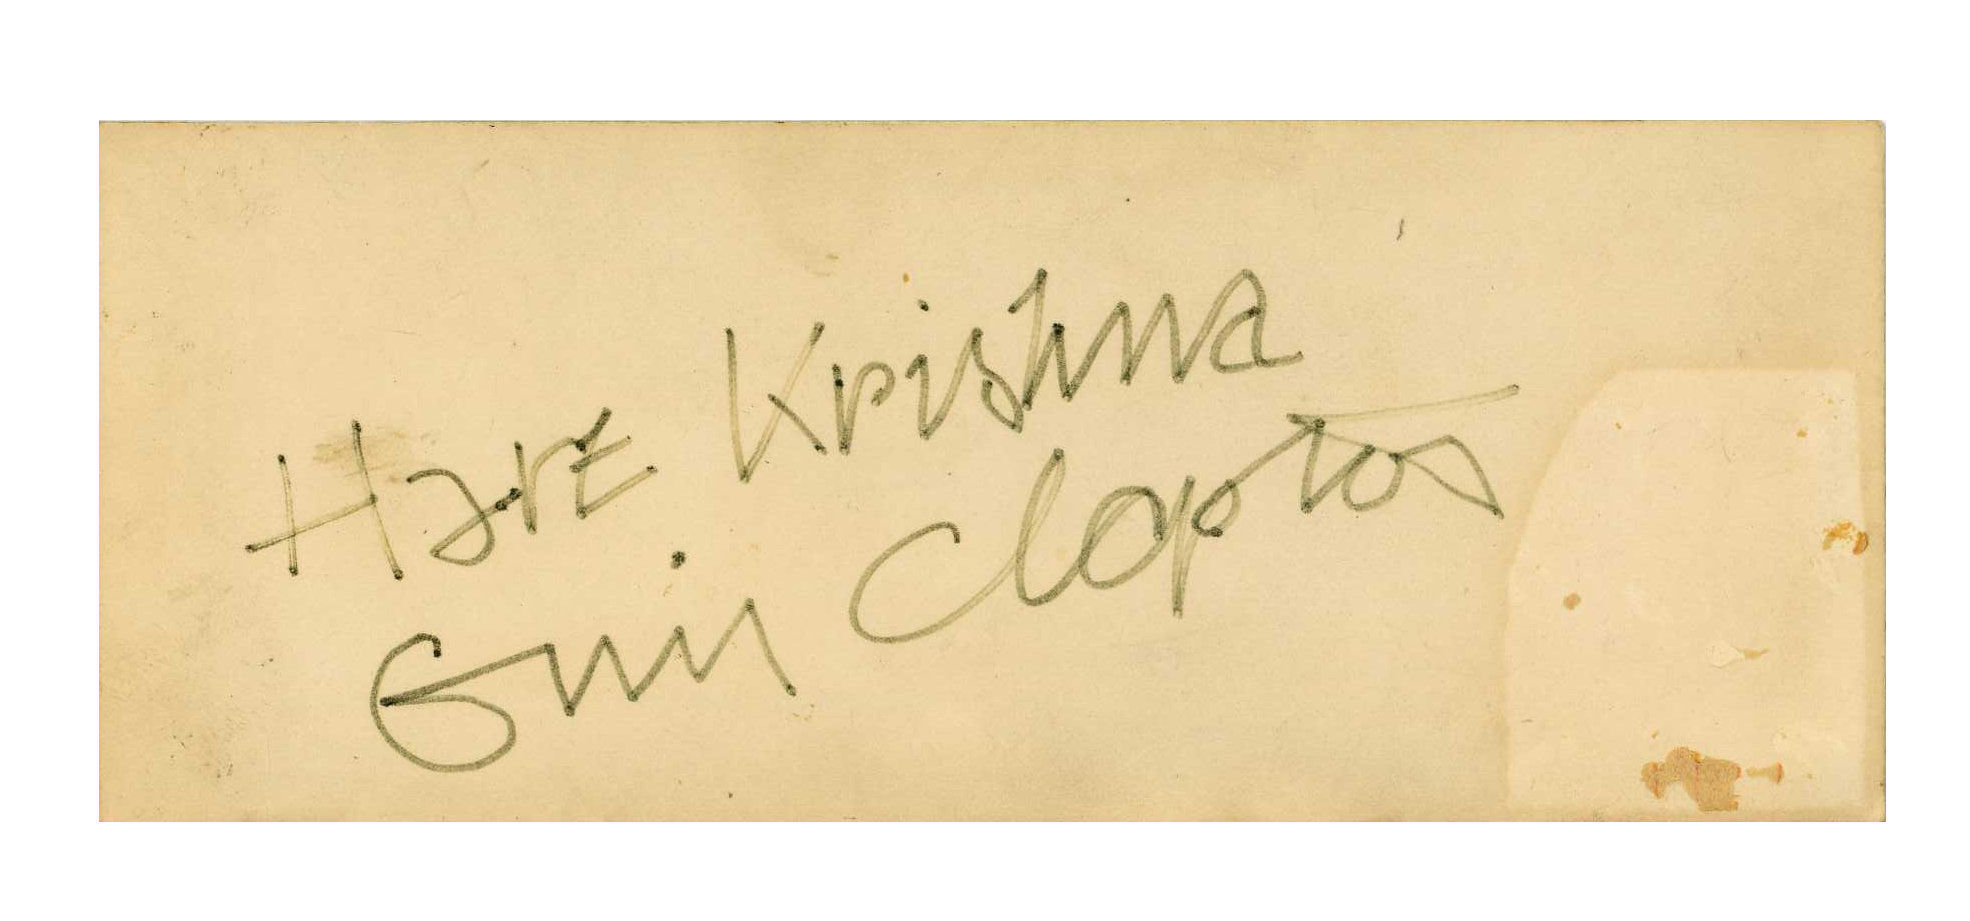 Hare Krishna
Eric Clapton